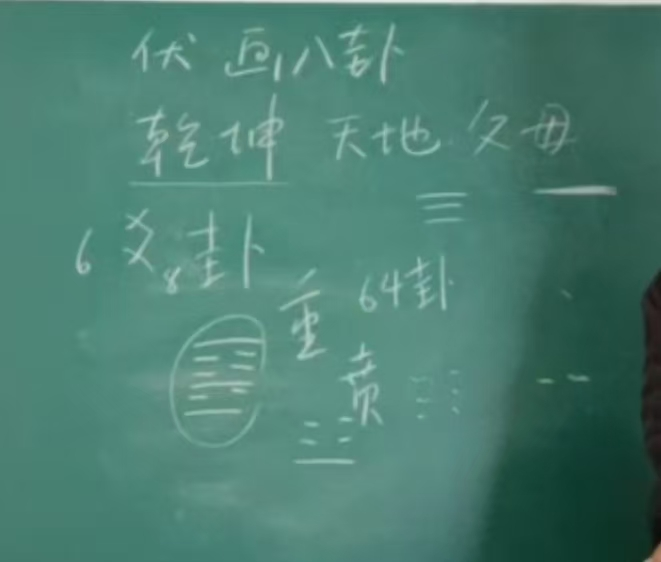 伏画八卦
乾坤 天地 父母
☰
6爻8卦
重 64卦
贲 ☷
☳